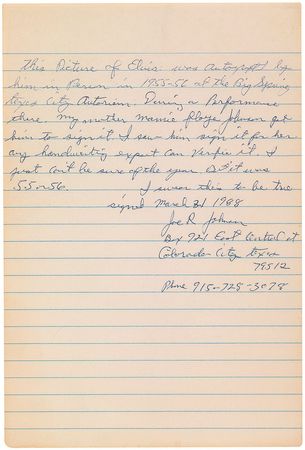 This Picture of Elvis was Autograpt by
him in Person in 1955-56 at the Big Spring
texas City Autoriem. During a Performance
there. My mother Mamie Floye Johnson got
him to sign it I saw him sign it for her
any handwriting expert can Verfie it. I
just can't be sure of the year But it was
55 or 56.
I swear this to be true
signed March 21 1988
Joe R Johnson
Bx 921 East Central st
Colorado City texas
79512
Phone 915-728-3078